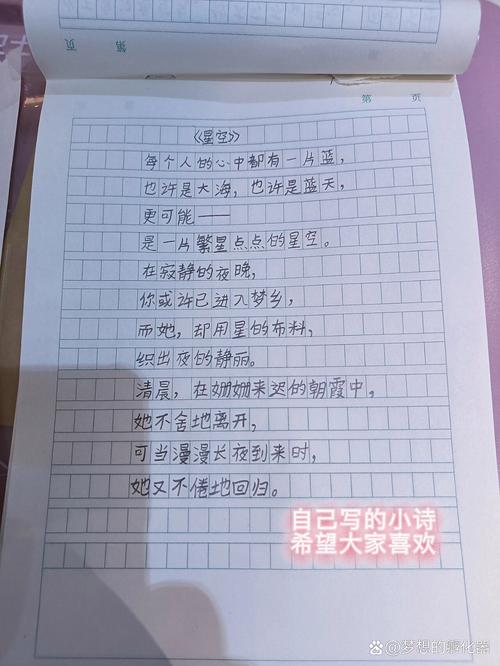 页 第
第 页
《星空》
每个人的心中都有一片蓝，
也许是大海，也许是蓝天，
更可能——
是一片繁星点点的星空。
在寂静的夜晚，
你或许已进入梦乡，
而她，却用星的布料，
织出夜的静丽。
清晨，在姗姗来迟的朝霞中，
她不舍地离开，
可当漫漫长夜到来时，
她又不倦地回归。
自己写的小诗
希望大家喜欢
梦想的孵化器